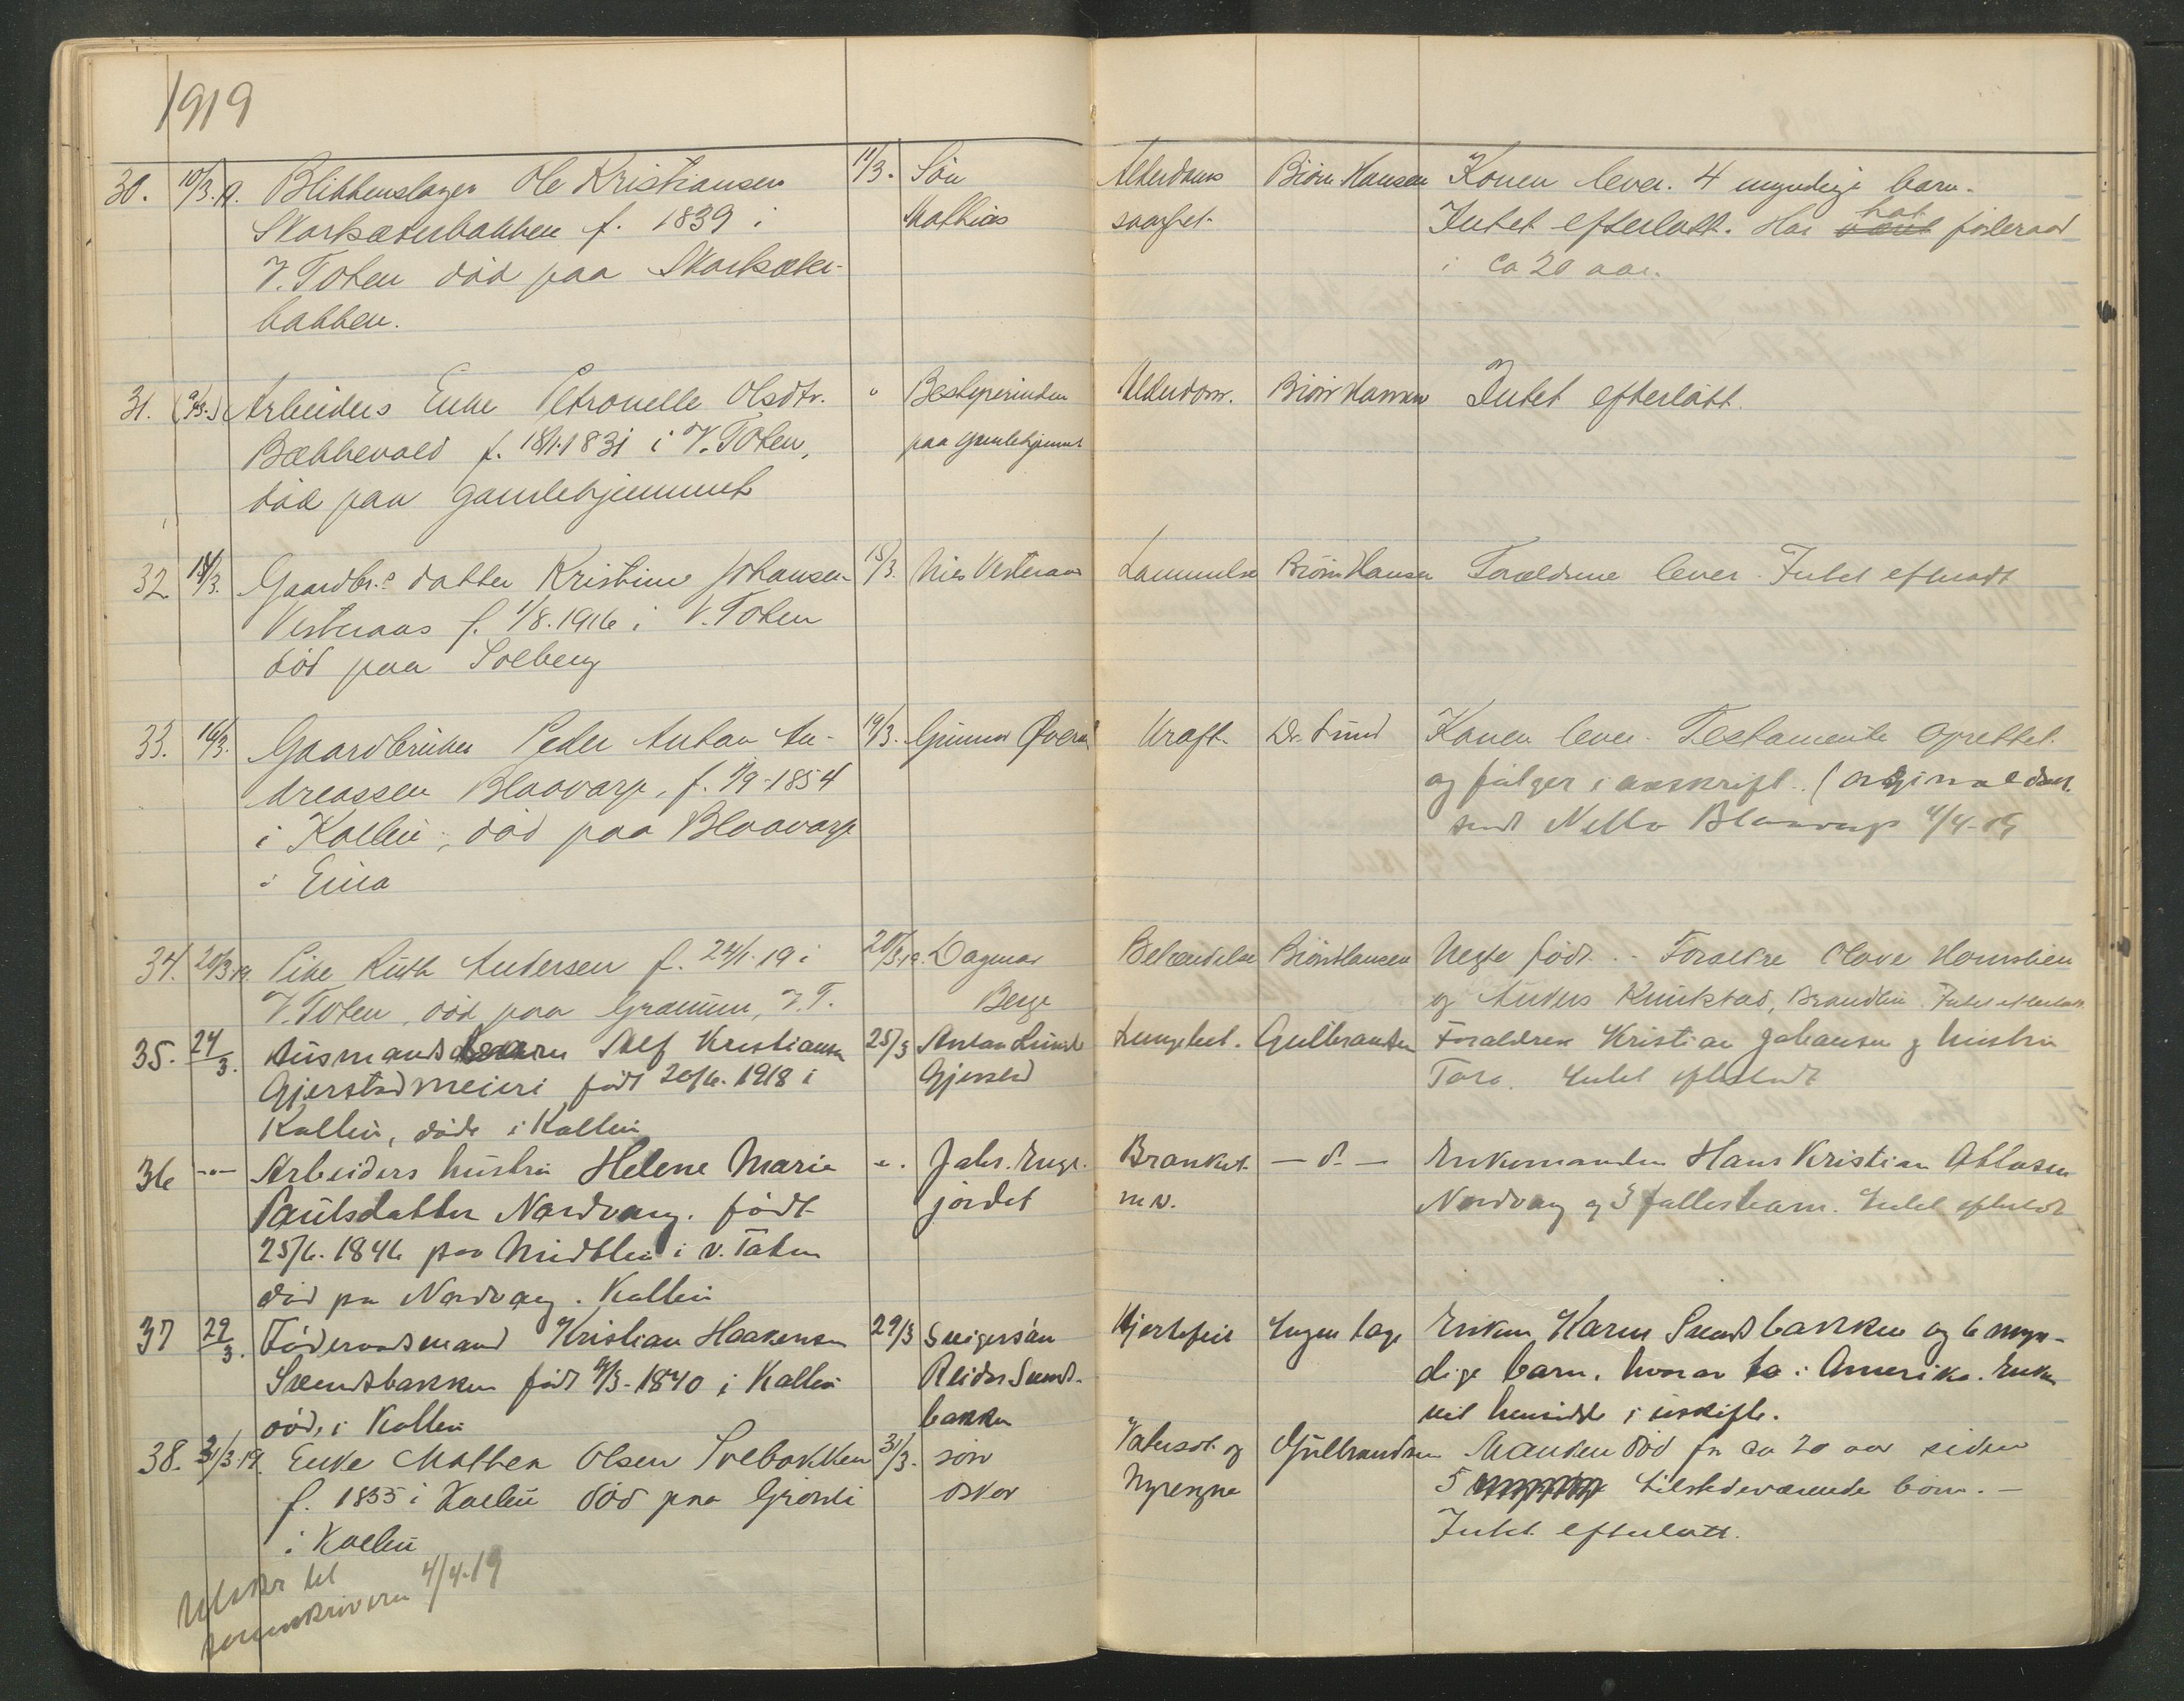 1919
30. 10/3.19. Blikkenslager Ole Kristiansen 11/3. Søn Alderdoms Biørn Hansen Konen lever. 4 myndige barn.
Skarsæterbakken f. 1839 i Mathias svaghet. Intet efterlatt. Har hat føderaad
V. Toten død paa Skarsæter- i ca 20 aar.
bakken.
31. Arbeiders Enke Petronelle Olsdtr. " Bestyrerinden Alderdom. Biørn Hansen Intet efterlatt.
Bækkevold f. 18/1.1831 i V. Toten, paa gamlehjemmet
død paa gamlehjemmet
32 Gaardbr.s datter Kristine Johansen 15/3. Nils Vesteraas Lammelse Biørn Hansen Forældrene lever. Intet efterladt
Vesteraas f. 1/8.1916 i V. Toten
død paa Solberg
33. 16/3. Gaardbruker Peder Anton An- 19/3. Gunnar Kraft. Dr. Lund Konen lever. Testamente oprettet
dreassen Blaavarp, f. 1/9-1854 og følger i avskrift. (Originalen
i Kolbu, død paa Blaavarp sendt Blaavarp 4/4-19
i Eina
34. 20/3.19. Pike Ruth Andersen f. 24/1.19 i 20/3.19. Dagmar Betændelse Biørn Hansen Uegte født. - Forældre Olava
V. Toten, død paa V.T. Berge og Anders Intet efterlatt
35. 24/3. Husmands Alf Kristiansen 25/3 Anton Lungebet. Gulbrandsen Forældrene Kristian Johansen og hustru
Gjerstad meieri født 20/6.1918 i Gjerstad Intet efterladt
Kolbu, døde i Kolbu
36 -"- Arbeiders hustru Helene Marie -"- Johs. Enge- Bronkit. - d. - Enkemanden Hans Kristian
Paulsdatter Nordvang. født jordet m.v. Nordvang og 3 fællesbarn. Intet efterladt
25/6.1846 paa i V. Toten
død paa Nordvang. Kolbu
37 29/3. Føderaadsmand Kristian Haakensen 29/3 Svigersøn Hjertefeil Ingen læge Enken Karen Svendsbakken og 6 myn-
Svendsbakken født 9/3-1840 i Kolbu Reidar Svends- dige barn, hvorav to i Amerika. Enken
død, i Kolbu bakken vil hensidde i uskifte.
38. 31/3.19. Enke Mathea Olsen Solbakken 31/3. søn Vatersot og Gulbrandsen Manden død for ca 20 aar siden
f. 1835 i Kolbu død paa Grønli Oskar Nyresyke 5 tilstedeværende børn. -
i Kolbu Intet efterlatt.
Utskr til
sorenskriveren 4/4.19